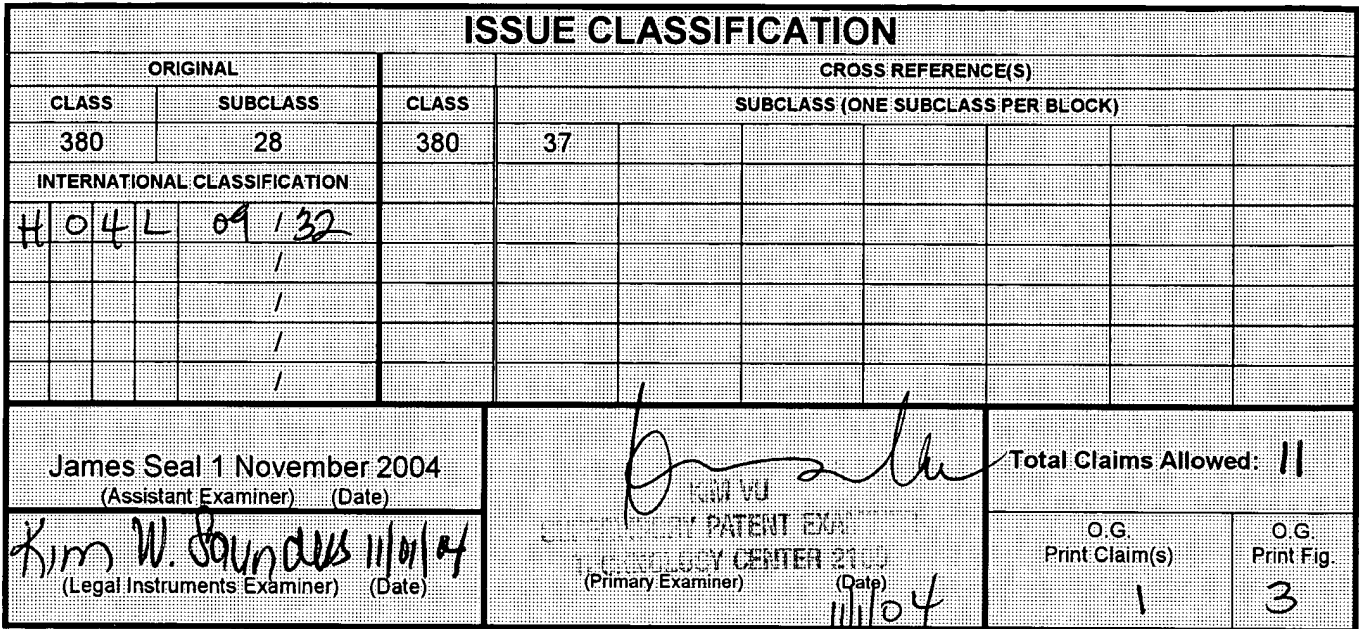 ISSUE CLASSIFICATION
ORIGINAL CROSS REFERENCE(S)
CLASS SUBCLASS CLASS SUBCLASS (ONE SUBCLASS PER BLOCK)
380 28 380 37
INTERNATIONAL CLASSIFICATION
H 0 4 L 09 / 32
/
/
/
/
James Seal 1 November 2004
(Assistant Examiner) (Date)
Kim W. Saunders 11/01/04
(Legal Instruments Examiner) (Date)
KIM VU
PATENT
TECHNOLOGY CENTER 2100
(Primary Examiner) (Date)
11/1/04
Total Claims Allowed: 11
O.G.
Print Claim(s)
1
O.G.
Print Fig.
3